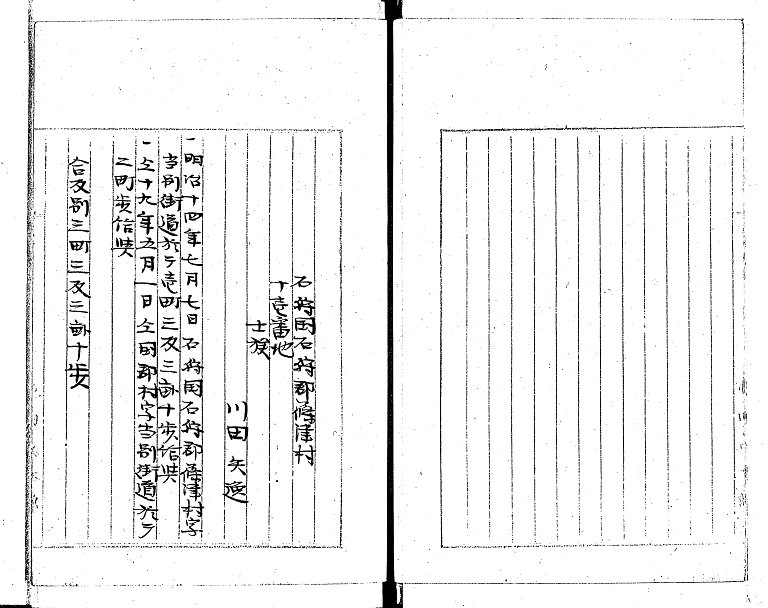 石狩国石狩郡篠津村
十壱番地
士族
川田矢逸
一明治十四年七月七日石狩国石狩郡篠津村字
当別街道於テ壱町三反三畝十歩
一仝十九年五月一日仝国郡村字当別街道於テ
二町歩
合反別三町三反三畝十歩